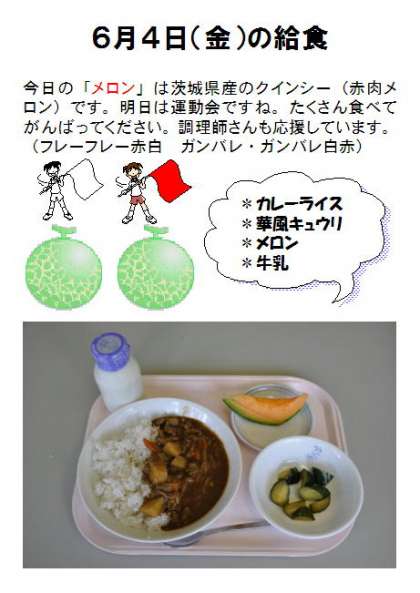 ６月４日（金）の給食
今日の「メロン」は茨城県産のクインシー（赤肉メ
ロン）です。明日は運動会ですね。たくさん食べて
がんばってください。調理師さんも応援しています。
（フレーフレー赤白　ガンバレ・ガンバレ白赤）
＊カレーライス
＊華風キュウリ
＊メロン
＊牛乳